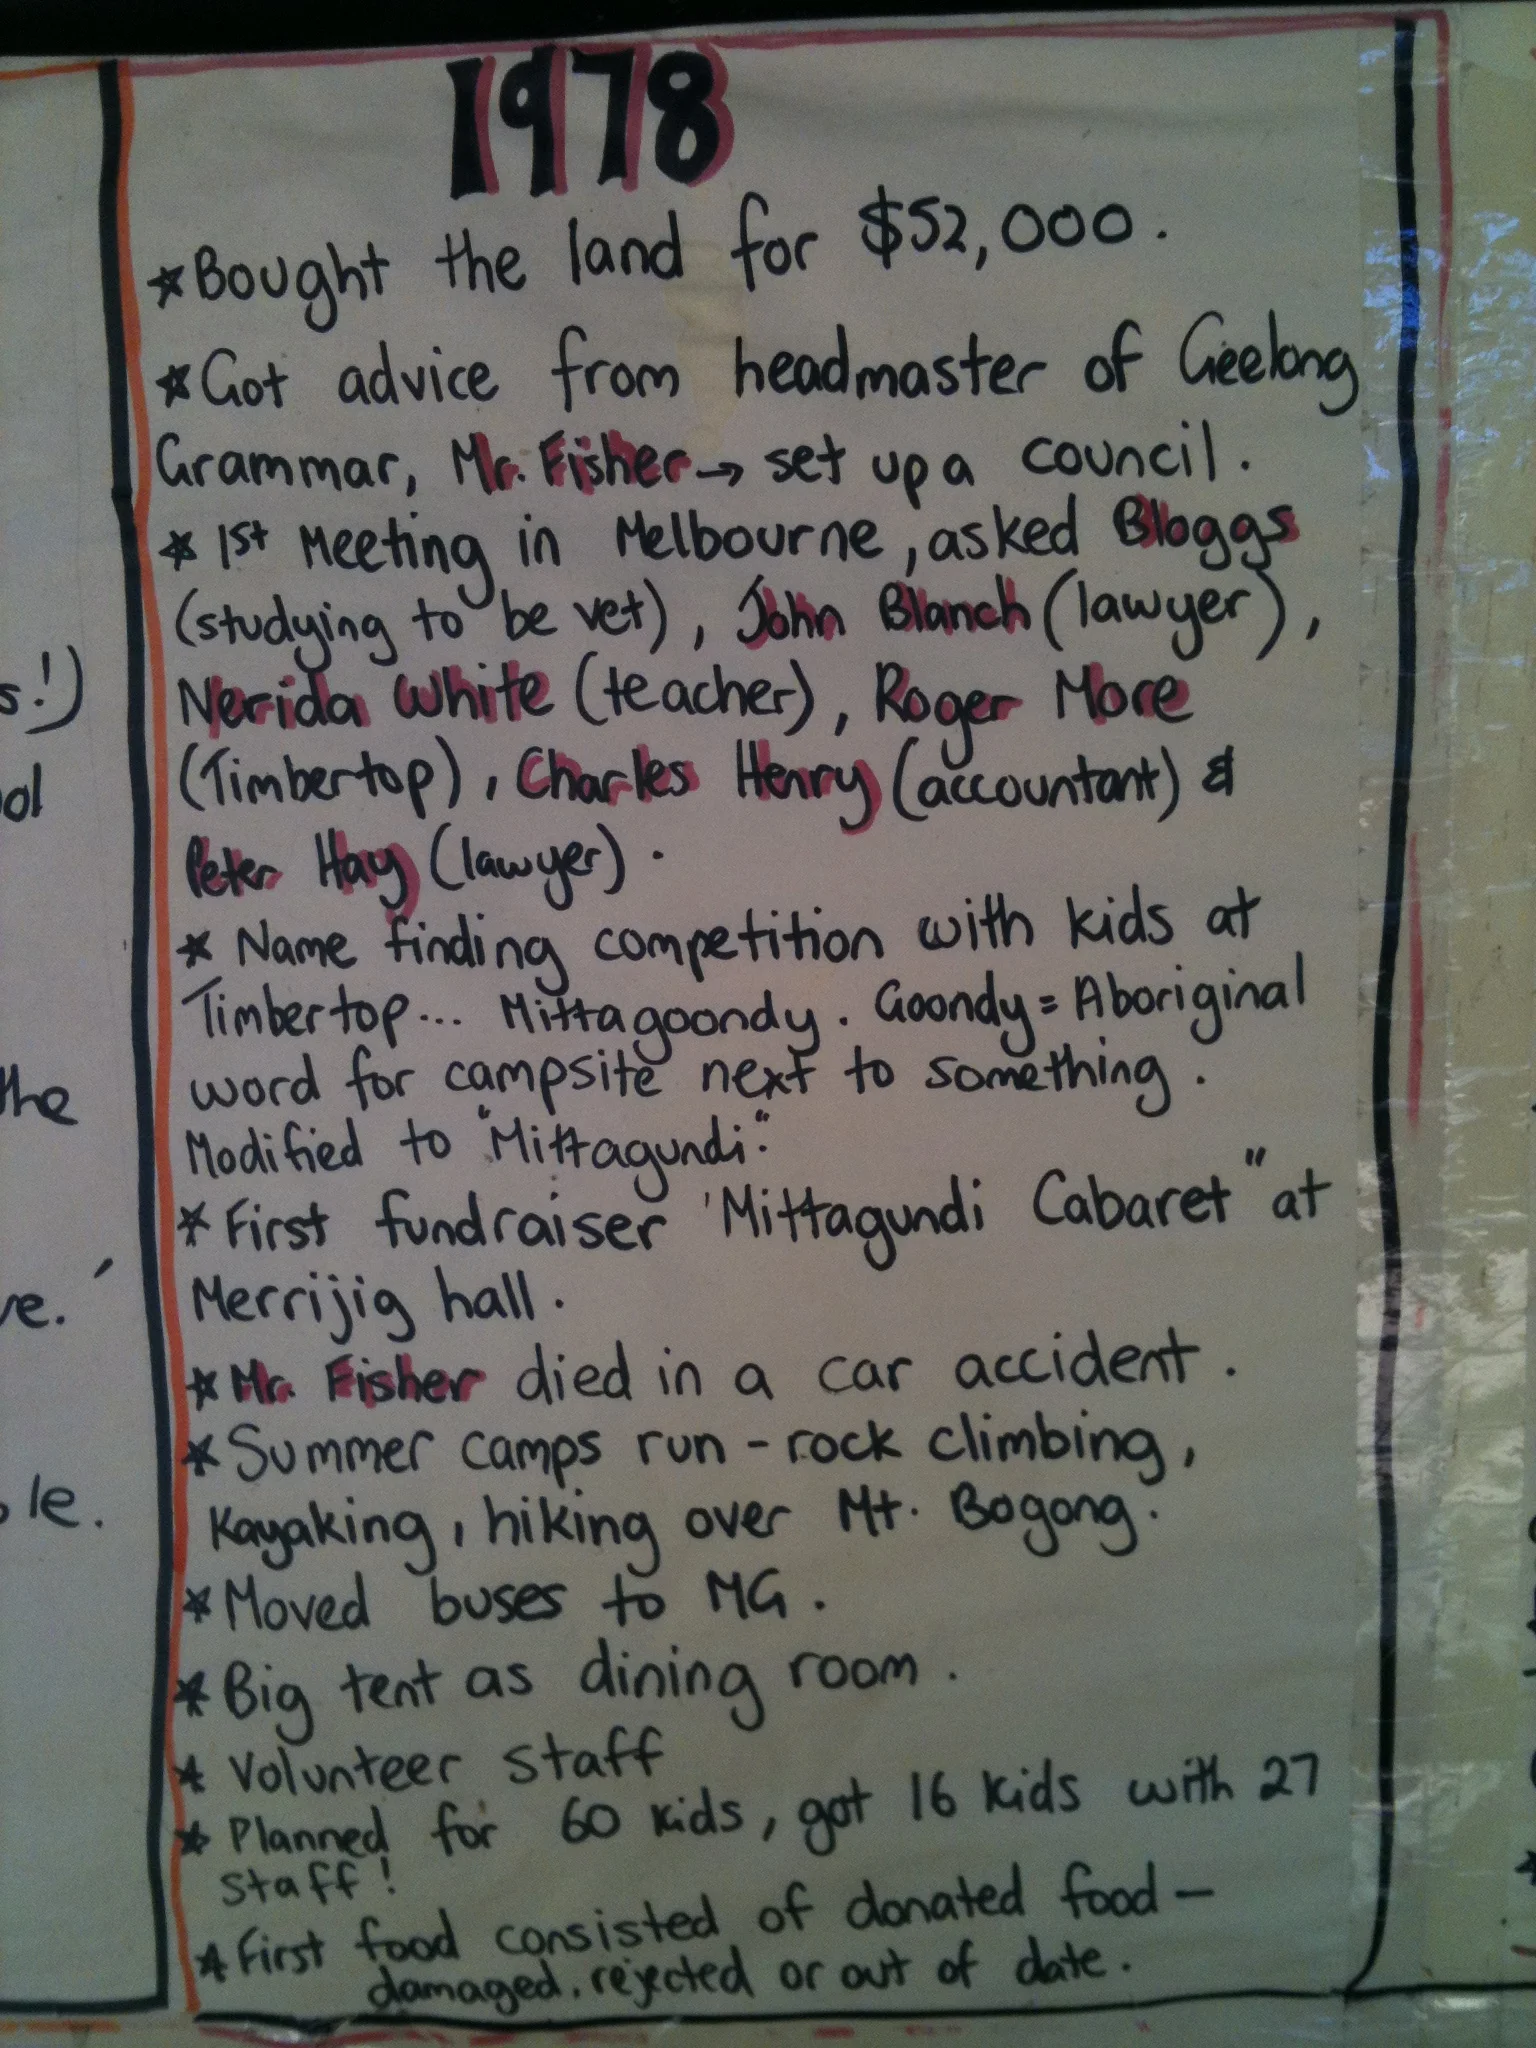 1978
*Bought the land for $52,000.
*Got advice from headmaster of Geelong
Grammar, Mr. Fisher → set up a council.
* 1st Meeting in Melbourne, asked Bloggs
(studying to be vet), John Blanch (lawyer),
Nerida White (teacher), Roger More
(Timbertop), Charles Henry (accountant) &
Peter Hay (lawyer).
* Name finding competition with kids at
Timbertop... Mittagoondy. Goondy = Aboriginal
word for campsite next to something.
Modified to "Mittagundi."
* First fundraiser 'Mittagundi Cabaret" at
Merrijig hall.
* Mr. Fisher died in a car accident.
* Summer camps run - rock climbing,
Kayaking, hiking over Mt. Bogong.
* Moved buses to MG.
* Big tent as dining room.
* Volunteer staff
* Planned for 60 kids, got 16 kids with 27
staff!
* First food consisted of donated food -
damaged, rejected or out of date.
s!)
ol
the
ve.
le.